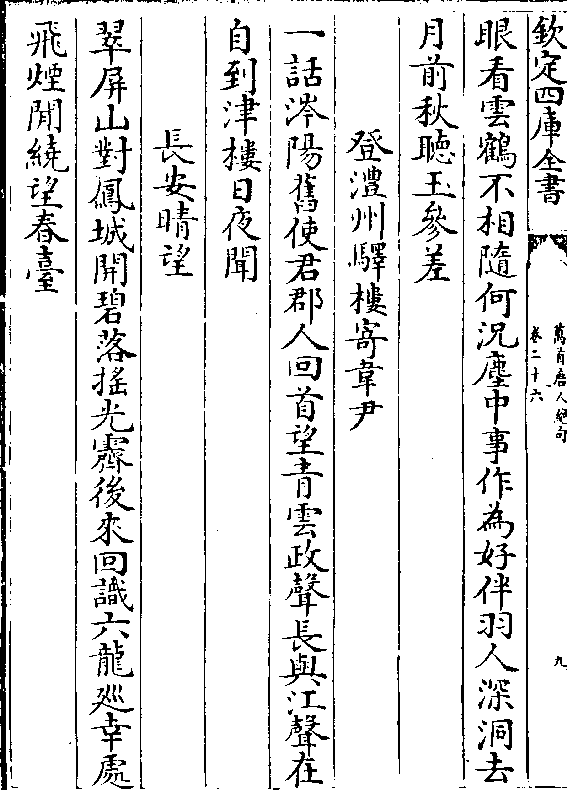 欽定四庫全書
萬首唐人絶句
卷二十六
九
眼看雲鶴不相隨何況塵中事作為好伴羽人深洞去
月前秋聴玉參差
登澧州驛樓寄韋尹
一話涔陽舊使君郡人回首望青雲政聲長與江聲在
自到津樓日夜聞
長安晴望
翠屏山對鳳城開碧落揺光霽後來回識六龍廵幸處
飛煙閒繞望春臺